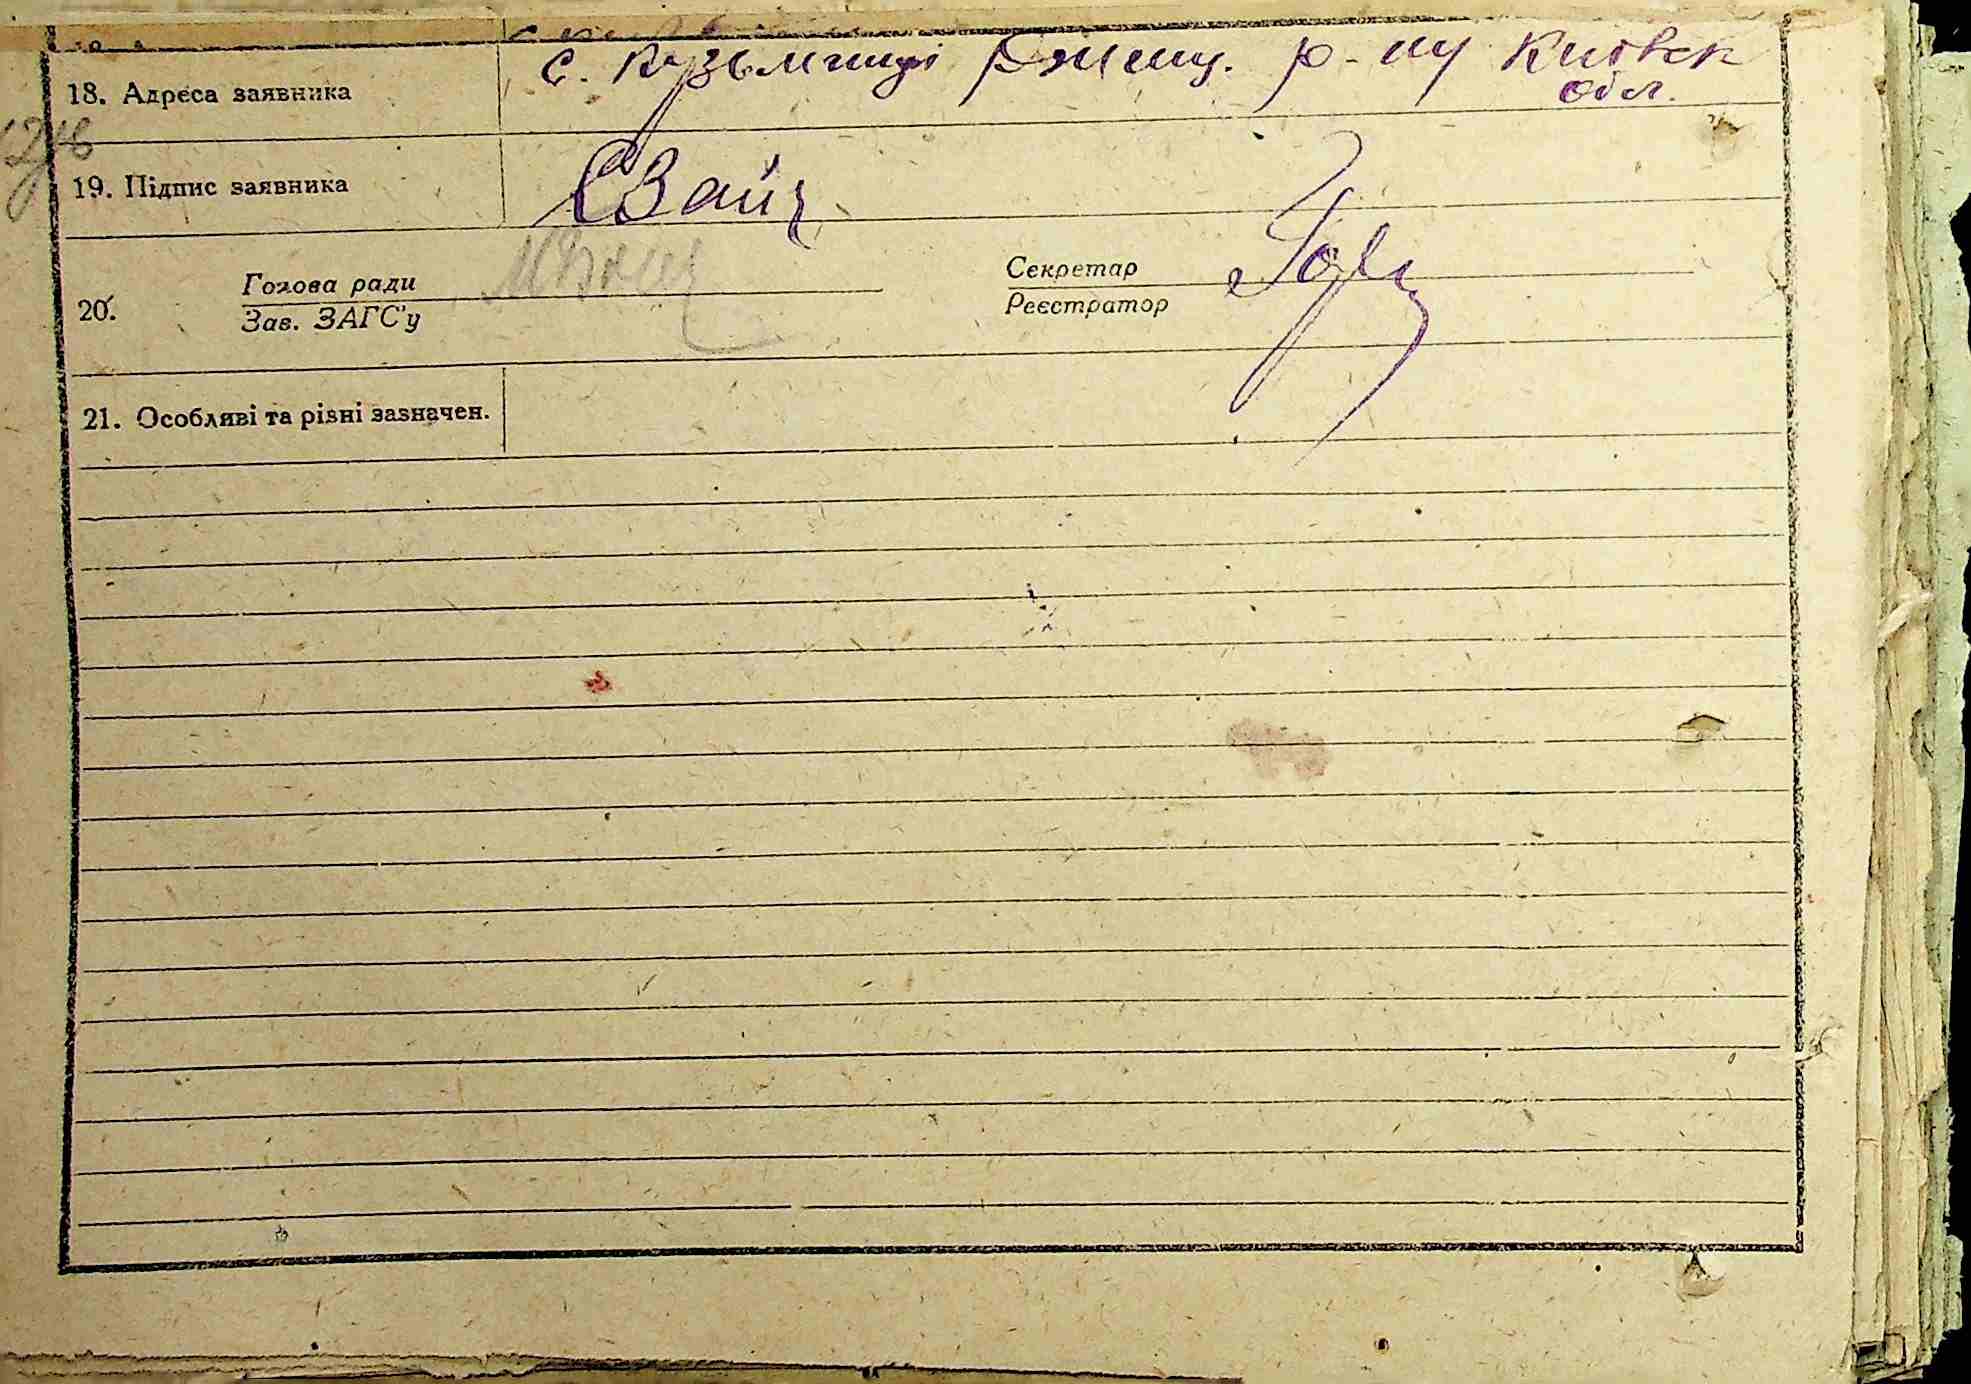 с. Кузьминці Ржищ. р-ну Київськ
обл.
18. Адреса заявника
19. Підпис заявника
Голова ради
Секретар
20.
Зав. ЗАГС'у
Реєстратор
21. Особливі та різні зазначен.